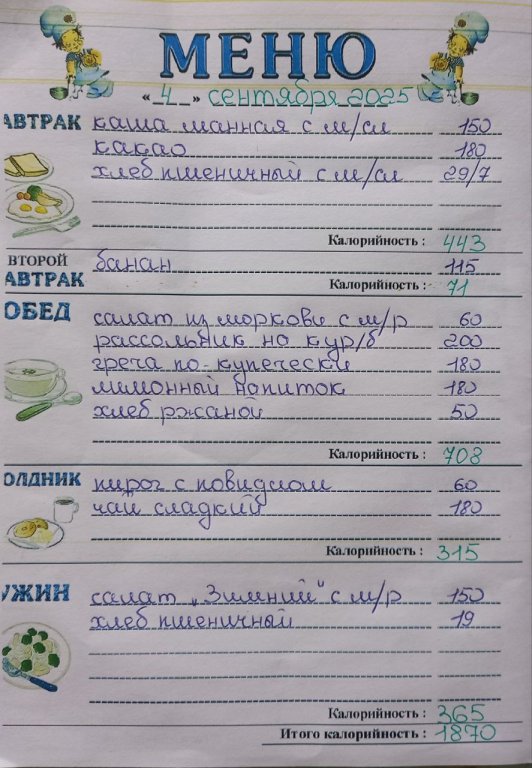 МЕНЮ
« 4 » сентября 2025
АВТРАК каша манная с м/сл 150
какао 180
хлеб пшеничный с м/сл 29/7
Калорийность : 443
ВТОРОЙ
АВТРАК банан 115
Калорийность : 71
ОБЕД
салат из моркови с м/р 60
рассольник на кур/б 200
греча по-купечески 180
лимонный напиток 180
хлеб ржаной 50
Калорийность : 708
ОЛДНИК пирог с повидлом 60
чай сладкий 180
Калорийность : 315
УЖИН салат „Зимний" с м/р 150
хлеб пшеничный 19
Калорийность : 365
Итого калорийность : 1870